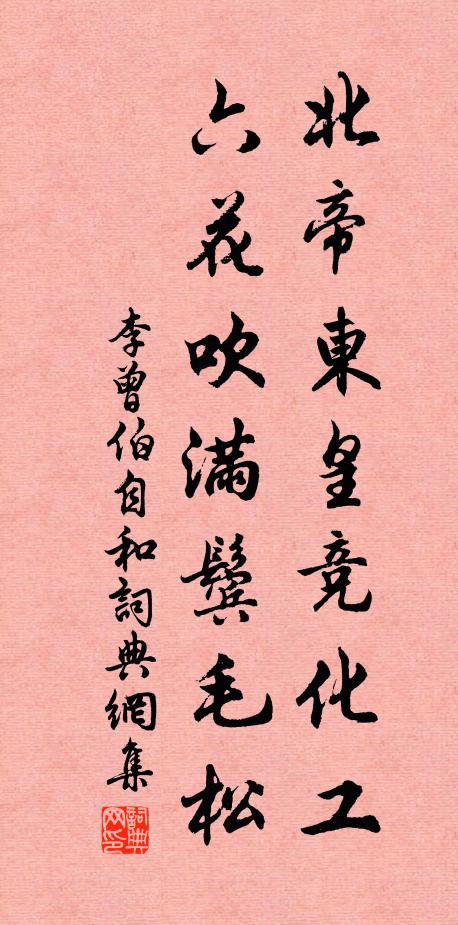 北帝東皇竞化工
六花吹满鬓毛松
李曾伯自和詞典網集
詞典网印